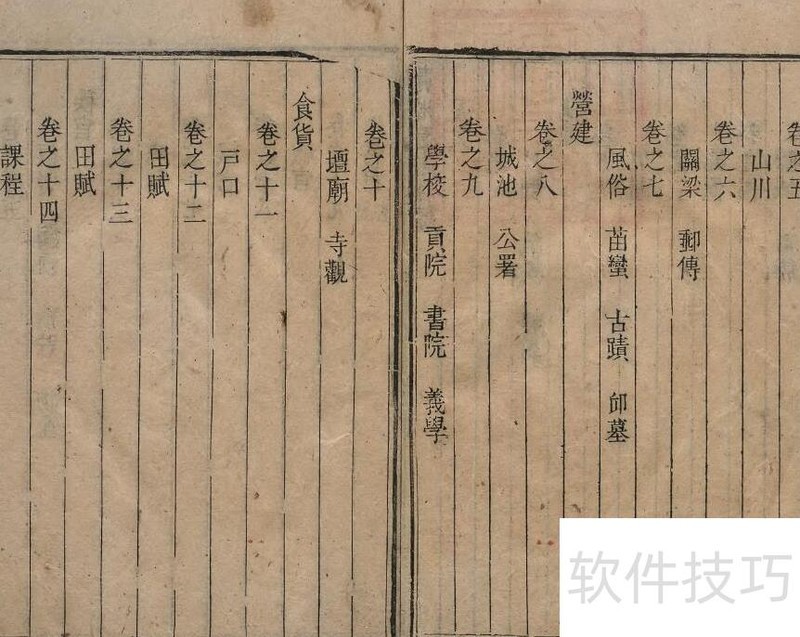 卷之五
山川
卷之六
關梁 郵傳
卷之七
風俗 苗蠻 古蹟 邱墓
營建
卷之八
城池 公署
卷之九
學校 貢院 書院 義學
卷之十
壇廟 寺觀
食貨
卷之十一
戸口
卷之十二
田賦
卷之十三
田賦
卷之十四
課程
软件技巧